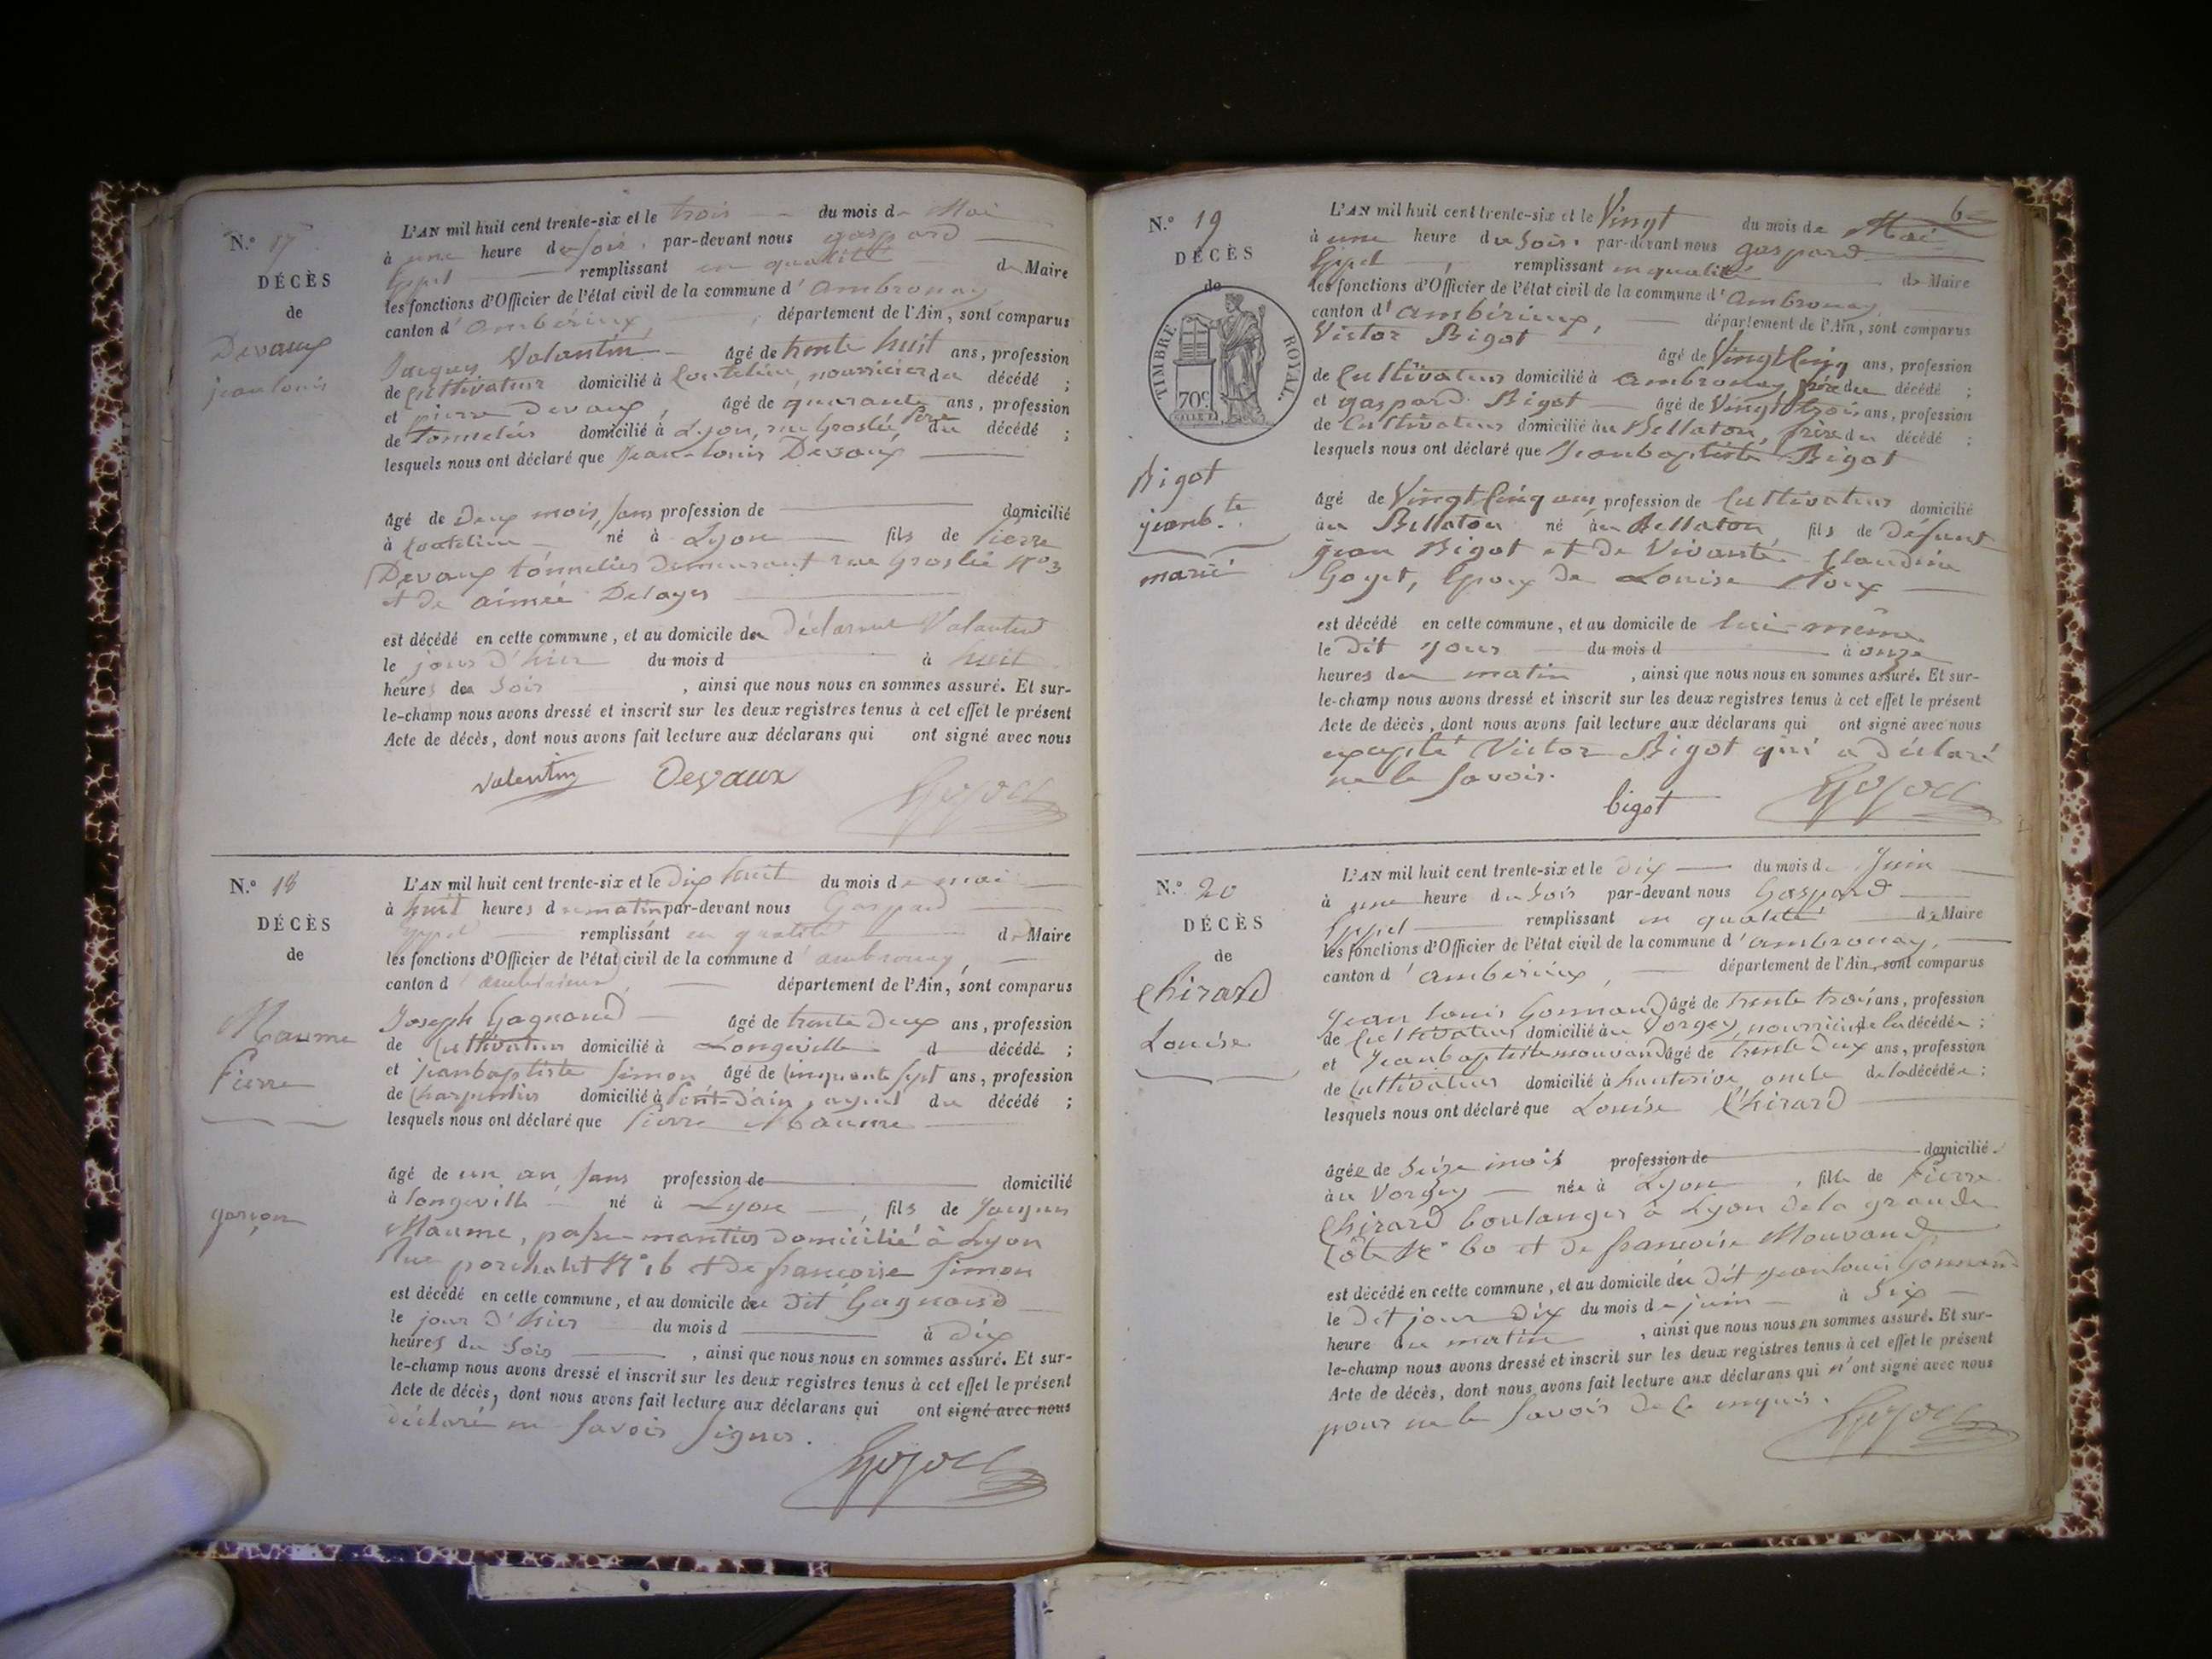 N.° 17
DÉCÈS
de
Devaux
jean louis
L'AN mil huit cent trente-six et le trois du mois de Mai
à une heure du soir, par-devant nous gaspard
remplissant en qualité de Maire
les fonctions d'Officier de l'état civil de la commune d'ambronay
canton d'ambérieux, département de l'Ain, sont comparus
Jacques Valantin âgé de trente huit ans, profession
de Cultivateur domicilié à Coutelieu, nourricier du décédé ;
et pierre Devaux, âgé de quarante ans, profession
de tonnelier domicilié à Lyon, rue Groslée, Père du décédé ;
lesquels nous ont déclaré que Jean-Louis Devaux
âgé de deux mois, sans profession de domicilié
à Coutelieu né à Lyon fils de Pierre
Devaux tonnelier demeurant rue Groslée N° 3
et de aimée Delayes
est décédé en cette commune, et au domicile du déclarant Valantin
le jour d'hier du mois d à huit
heures du soir, ainsi que nous nous en sommes assuré. Et sur-
le-champ nous avons dressé et inscrit sur les deux registres tenus à cet effet le présent
Acte de décès, dont nous avons fait lecture aux déclarans qui ont signé avec nous
Valentin Devaux
N.° 18
DÉCÈS
de
Maume
Pierre
garçon
L'AN mil huit cent trente-six et le Dix huit du mois de mai
à huit heures du matin par-devant nous Gaspard
remplissant en qualité de Maire
les fonctions d'Officier de l'état civil de la commune d'ambronay,
canton d'ambérieux, département de l'Ain, sont comparus
Joseph Gagnand âgé de trente deux ans, profession
de Cultivateur domicilié à Longeville d décédé ;
et jeanbaptiste Simon âgé de Cinquante Sept ans, profession
de Charpentier domicilié à Pont-d'ain, ayeul du décédé ;
lesquels nous ont déclaré que Pierre Maume
âgé de un an, sans profession de domicilié
à Longeville né à Lyon, fils de Jacques
Maume, passementier domicilié à Lyon
Rue N° 16 et de françoise Simon
est décédé en cette commune, et au domicile du dit Gagnand
le jour d'hier du mois d à dix
heures du soir, ainsi que nous nous en sommes assuré. Et sur-
le-champ nous avons dressé et inscrit sur les deux registres tenus à cet effet le présent
Acte de décès, dont nous avons fait lecture aux déclarans qui ont signé avec nous
déclaré ne savoir signer.
6
N.° 19
DÉCÈS
de
TIMBRE ROYAL.
70c
Bigot
jeanb.te
marié
L'AN mil huit cent trente-six et le Vingt du mois de Mai
à une heure du soir, par-devant nous gaspard
remplissant en qualité de Maire
les fonctions d'Officier de l'état civil de la commune d'ambronay
canton d'ambérieux, département de l'Ain, sont comparus
Victor Bigot âgé de Vingt Cinq ans, profession
de Cultivateur domicilié à ambronay frère du décédé ;
et gaspard Bigot âgé de Vingt trois ans, profession
de Cultivateur domicilié au Bellaton, frère du décédé ;
lesquels nous ont déclaré que Jeanbaptiste Bigot
âgé de Vingt Cinq ans profession de Cultivateur domicilié
au Bellaton né au Bellaton fils de Défunt
jean Bigot et de Vivante Claudine
Goyet, Epoux de Louise Roux
est décédé en cette commune, et au domicile de lui-même
le dit jour du mois d à onze
heures du matin, ainsi que nous nous en sommes assuré. Et sur-
le-champ nous avons dressé et inscrit sur les deux registres tenus à cet effet le présent
Acte de décès, dont nous avons fait lecture aux déclarans qui ont signé avec nous
excepté Victor Bigot qui a déclaré
ne le savoir.
bigot
N.° 20
DÉCÈS
de
Chirard
Louise
L'AN mil huit cent trente-six et le dix du mois de Juin
à une heure du soir par-devant nous Gaspard
remplissant en qualité de Maire
les fonctions d'Officier de l'état civil de la commune d'ambronay,
canton d'ambérieux, département de l'Ain, sont comparus
Jean Louis Gonnand âgé de trente trois ans, profession
de Cultivateur domicilié au Vorgey, nourricier de la décédée ;
et Jeanbaptiste mouvand âgé de trente Deux ans, profession
de Cultivateur domicilié à hauterive oncle de la décédée ;
lesquels nous ont déclaré que Louise Chirard
âgée de Seize mois profession de domicilié
au Vorgey née à Lyon, fille de Pierre
Chirard boulanger à Lyon de la grande
Côte N° 60 et de françoise Mouvand
est décédé en cette commune, et au domicile du dit jeanlouis Gonnand
le dit jour dix du mois de juin à Six
heure du matin, ainsi que nous nous en sommes assuré. Et sur-
le-champ nous avons dressé et inscrit sur les deux registres tenus à cet effet le présent
Acte de décès, dont nous avons fait lecture aux déclarans qui n'ont signé avec nous
pour ne le savoir de ce enquis.